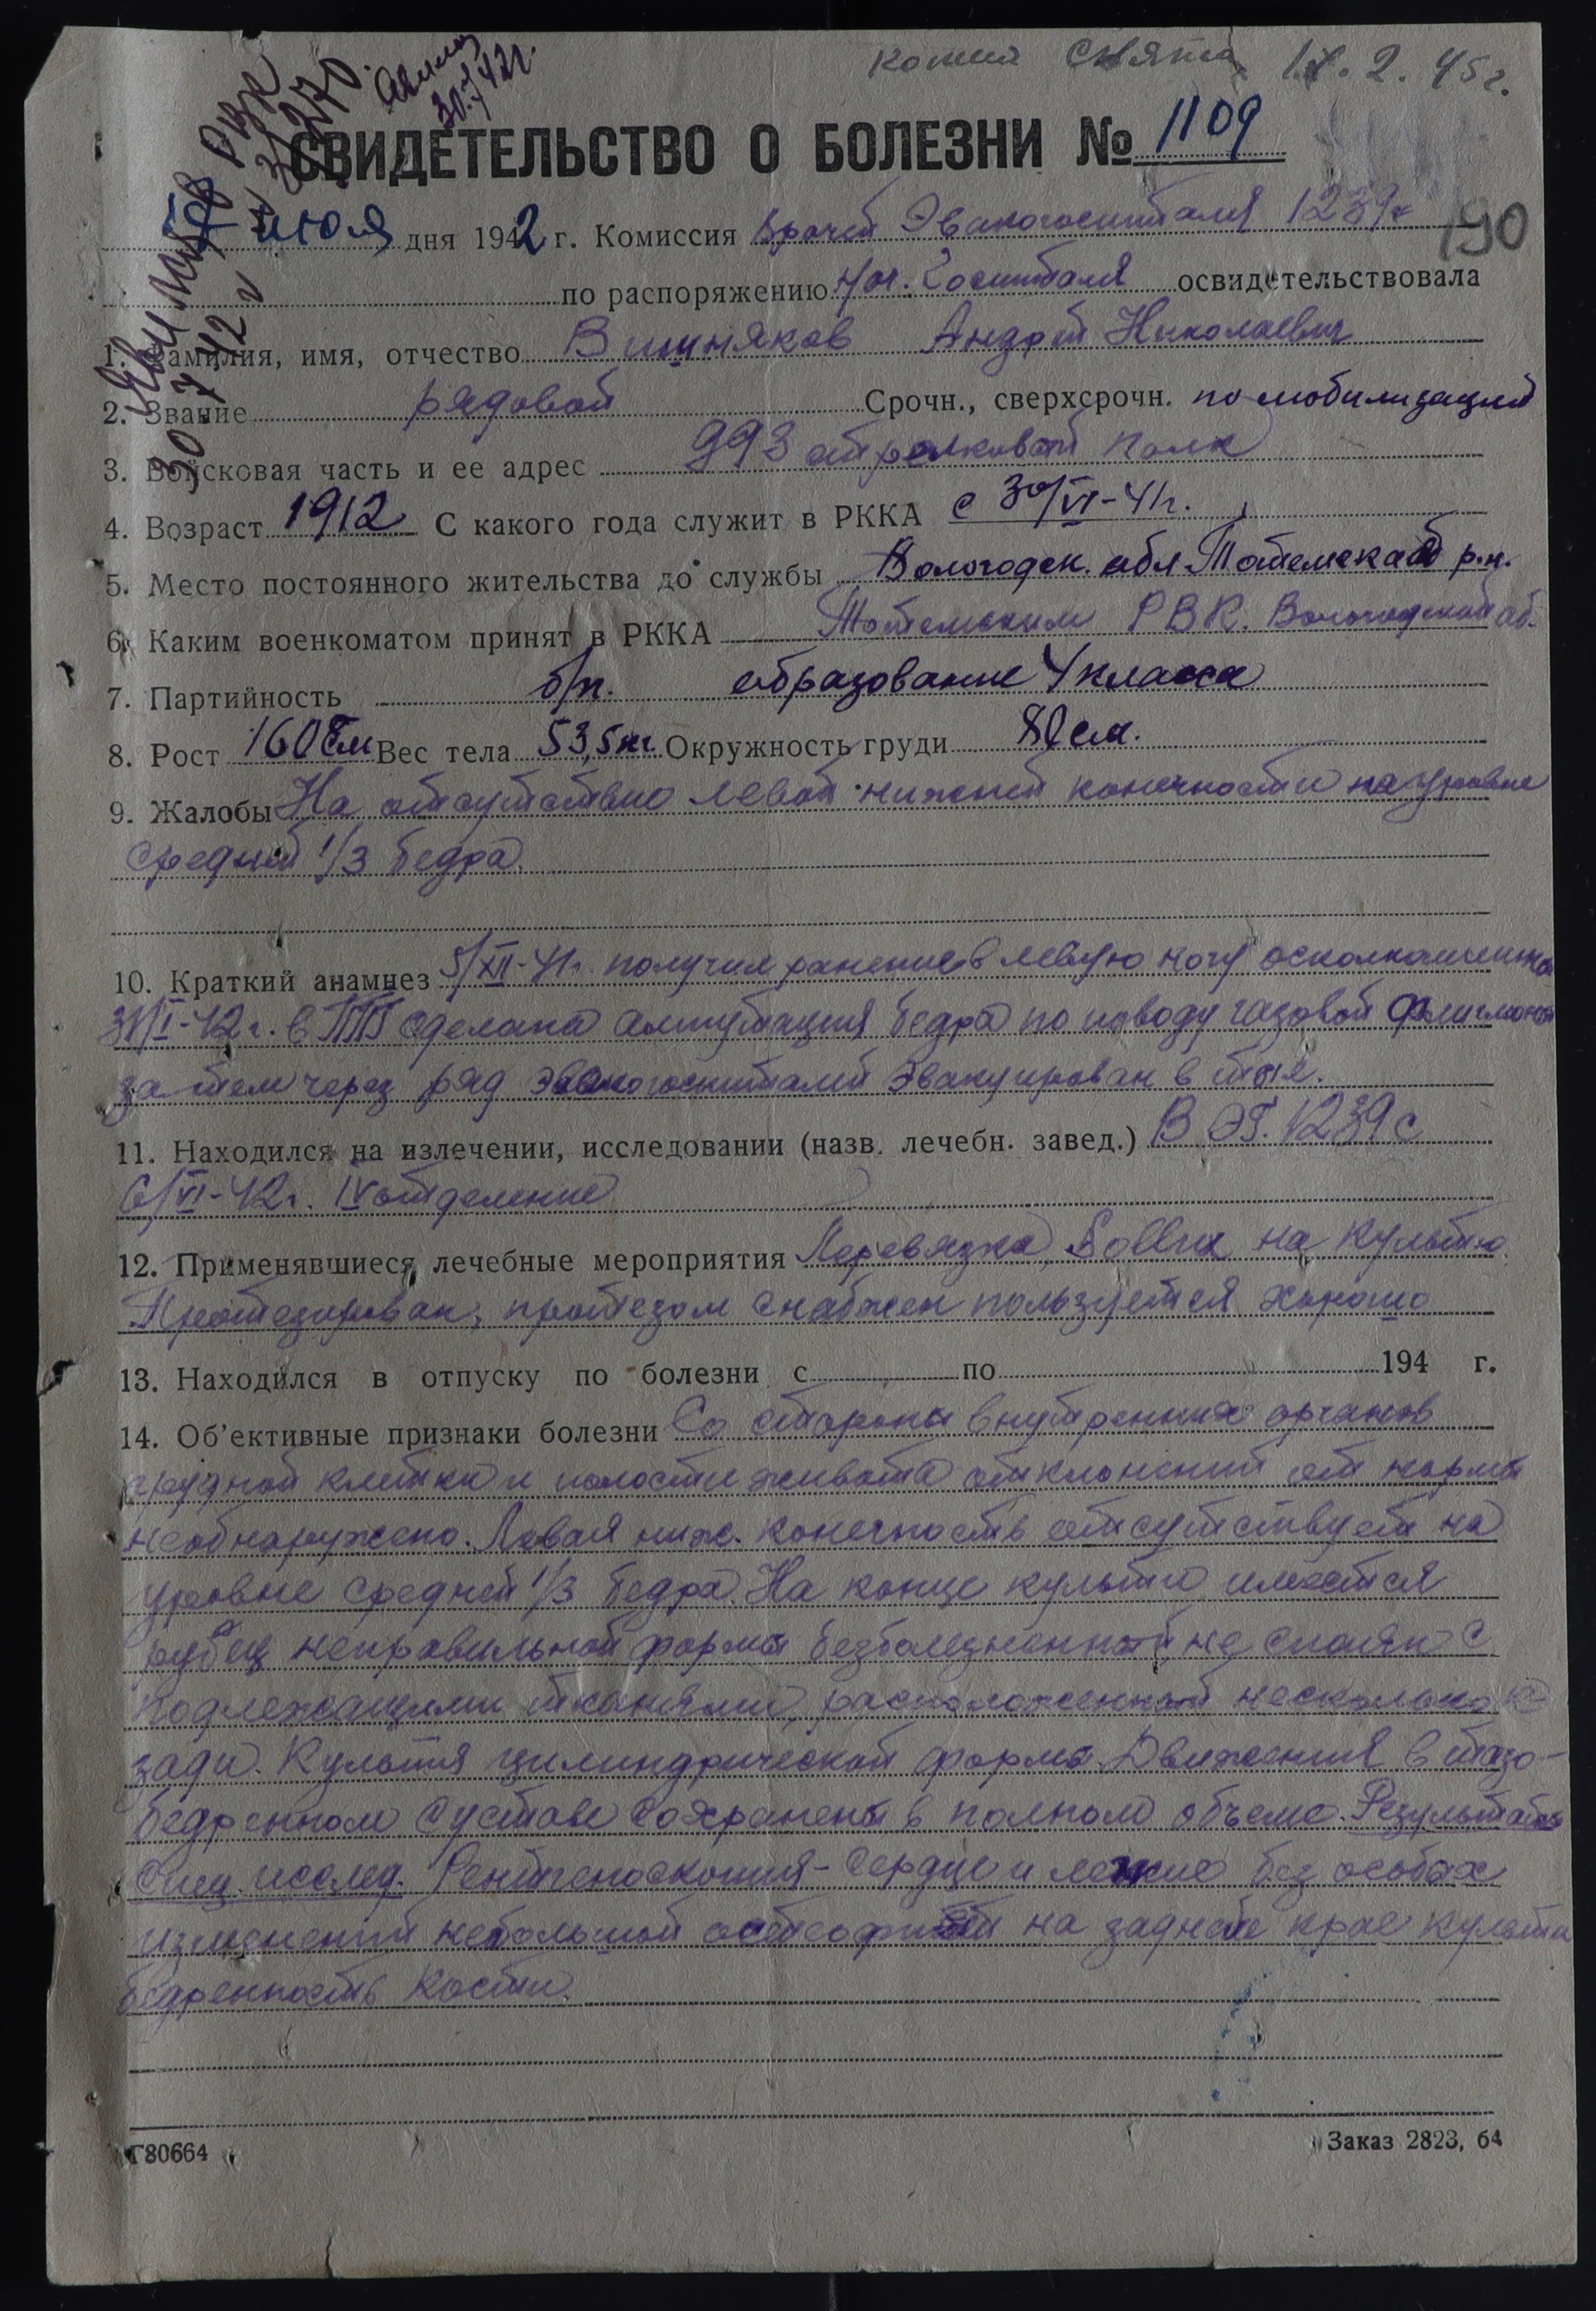 Копия снята 1X. 2. 45 г.
СВИДЕТЕЛЬСТВО О БОЛЕЗНИ № 1109
190
июля дня 1942 г. Комиссия врачей Эвакогоспиталя 1239
по распоряжению нач. Госпиталя освидетельствовала
1. Фамилия, имя, отчество Вишняков Андрей Николаевич
2. Звание рядовой Срочн., сверхсрочн. по мобилизации
3. Войсковая часть и ее адрес 993 стрелковый полк
4. Возраст 1912 С какого года служит в РККА с 30/VI-41г.
5. Место постоянного жительства до службы Вологодск. обл. Тотемский р-н.
6. Каким военкоматом принят в РККА Тотемским РВК. Вологодской об.
7. Партийность б/п. образование 4 класса
8. Рост 160 см Вес тела 53,5 кг Окружность груди 80 см.
9. Жалобы На отсутствие левой нижней конечности на уровне
средней 1/3 бедра.
10. Краткий анамнез 5/XII-41г. получил ранение в левую ногу осколком мины
31/I-42г. в ППГ сделана ампутация бедра по поводу газовой флегмоны
затем через ряд эвакогоспиталей эвакуирован в тыл.
11. Находился на излечении, исследовании (назв. лечебн. завед.) В ЭГ. 1239 с
6/VI-42г. IV отделение
12. Применявшиеся лечебные мероприятия Перевязка, Sollux на культю.
Протезирован, протезом снабжен пользуется хорошо
13. Находился в отпуску по болезни с по 194 г.
14. Об'ективные признаки болезни Со стороны внутренних органов
грудной клетки и полости живота отклонений от нормы
необнаружено. Левая ниж. конечность отсутствует на
уровне средней 1/3 бедра. На конце культи имеется
рубец неправильной формы безболезненный, не спаян с
подлежащими тканями, расположенный несколько к
зади. Культя цилиндрической формы. Движения в тазо-
бедренном суставе сохранены в полном объеме. Результаты
спец. исслед. Рентгеноскопия - сердце и легкие без особых
изменений небольшой остеофит на заднем крае культи
бедренность кости.
Г80664
Заказ 2823, 64